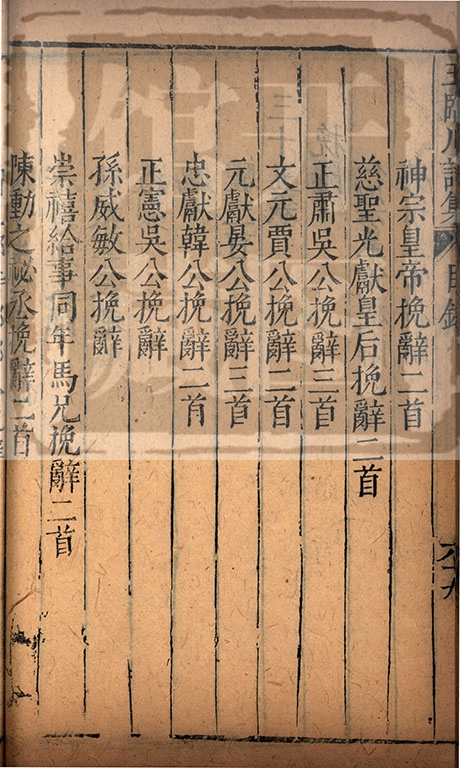 王臨川詩集 目錄 六十九
神宗皇帝挽辭二首
慈聖光獻皇后挽辭二首
正肅吳公挽辭三首
文元賈公挽辭二首
元獻晏公挽辭三首
忠獻韓公挽辭二首
正憲吳公挽辭
孫威敏公挽辭
崇禧給事同年馬兄挽辭二首
陳動之祕丞挽辭二首